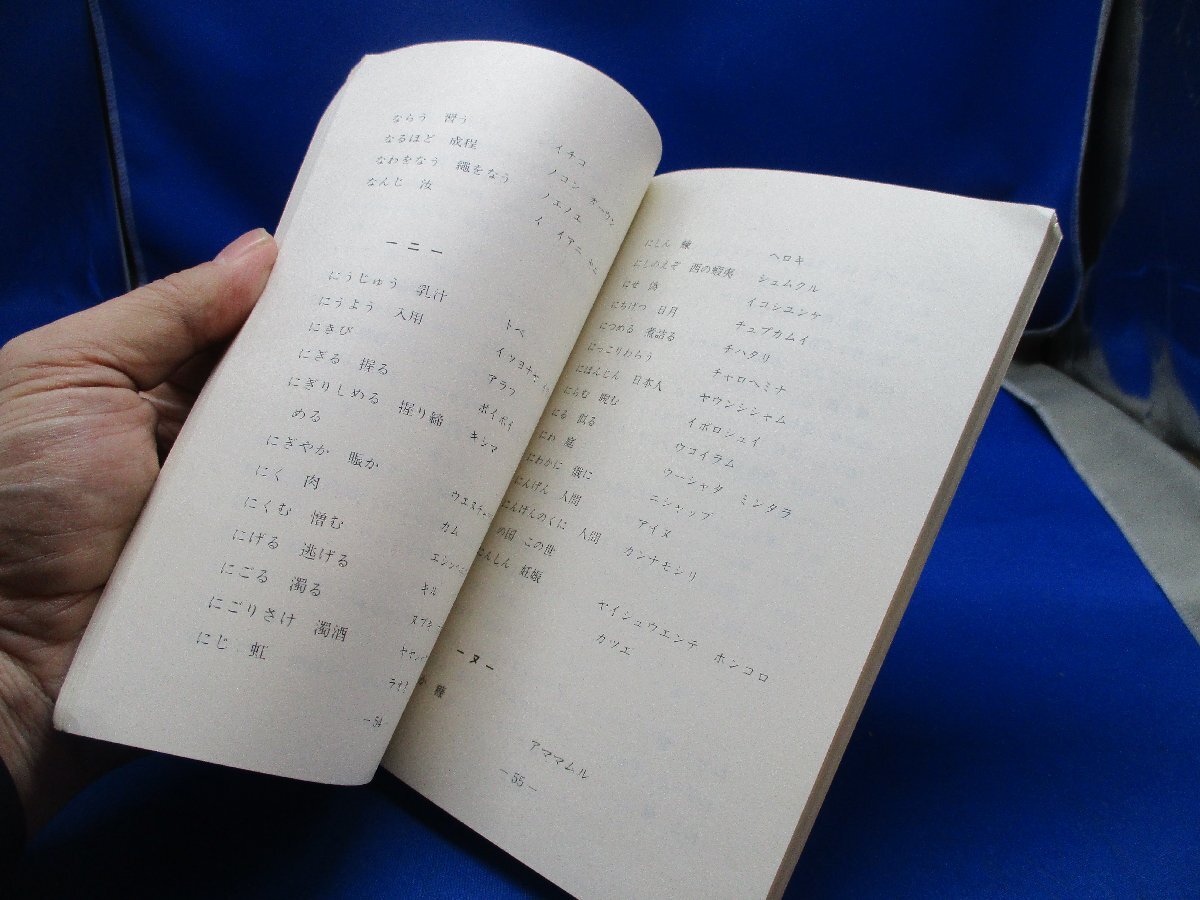 ならう 習う イチコ
なるほど 成程 ノコン オーウン
なわをなう 縄をなう ノエノエ
なんじ 汝 イ イアニ
ーニー
にうじゅう 乳汁 トペ
にうよう 入用
にきび アラフ
にぎる 握る ポイポイ
にぎりしめる 握り締 キシマ
める
にぎやか 賑か
にく 肉 カム
にくむ 憎む
にげる 逃げる キル
にごる 濁る
にごりさけ 濁酒
にじ 虹
―54
にしん 鰊 ヘロキ
にしのえぞ 西の蝦夷 シュムクル
にせ 偽 イコシユンケ
にちげつ 日月 チュプカムイ
につめる 煮詰る チハタリ
にっこりわらう チャロヘミナ
にほんじん 日本人 ヤウンシシャム
にらむ 睨む イポロシュイ
にる 似る ウコイラム
にわ 庭 ウーシャタ ミンタラ
にわかに 俄に ニシャップ
にんげん 人間 アイヌ
にんげんのくに 人間 カンナモシリ
の国 この世
にんしん 妊娠 ヤイシュウエンテ ホンコロ
カツエ
ーヌー
か 糠 アママムル
―55―